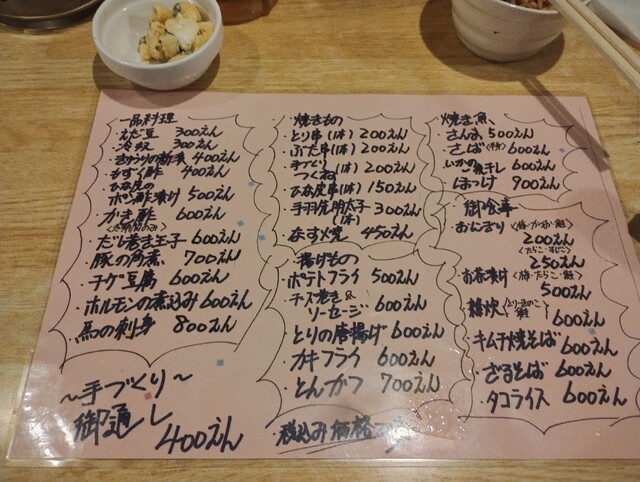 一品料理
・えだ豆 300えん
・冷奴 300えん
・きゅうりの新香 400えん
・もずく酢 400えん
・ひな皮の
ポン酢漬け 500えん
・かき酢 600えん
・だし巻き玉子 600えん
・豚の角煮 700えん
・チゲ豆腐 600えん
・ホルモンの煮込み 600えん
・馬の刺身 800えん
〜手づくり〜
御通し
400えん
・焼きもの
・とり串(1本) 200えん
・ぶた串(1本) 200えん
・手づくり
つくね(1本) 200えん
・ひな皮串(1本) 150えん
・手羽先明太子
(1本) 300えん
・なす焼 450えん
・揚げもの
・ポテトフライ 500えん
・チーズ巻き&
ソーセージ 600えん
・とりの唐揚げ 600えん
・カキフライ 600えん
・とんかつ 700えん
・税込み価格です
焼き魚
・さんま 500えん
・さば 600えん
・いかの一夜干し 600えん
・ほっけ 900えん
御食事
・おにぎり
200えん
〈たらこ・すじこ〉
250えん
・お茶漬け
500えん
・雑炊
600えん
・キムチ焼そば
600えん
・ざるそば 600えん
・タコライス 600えん